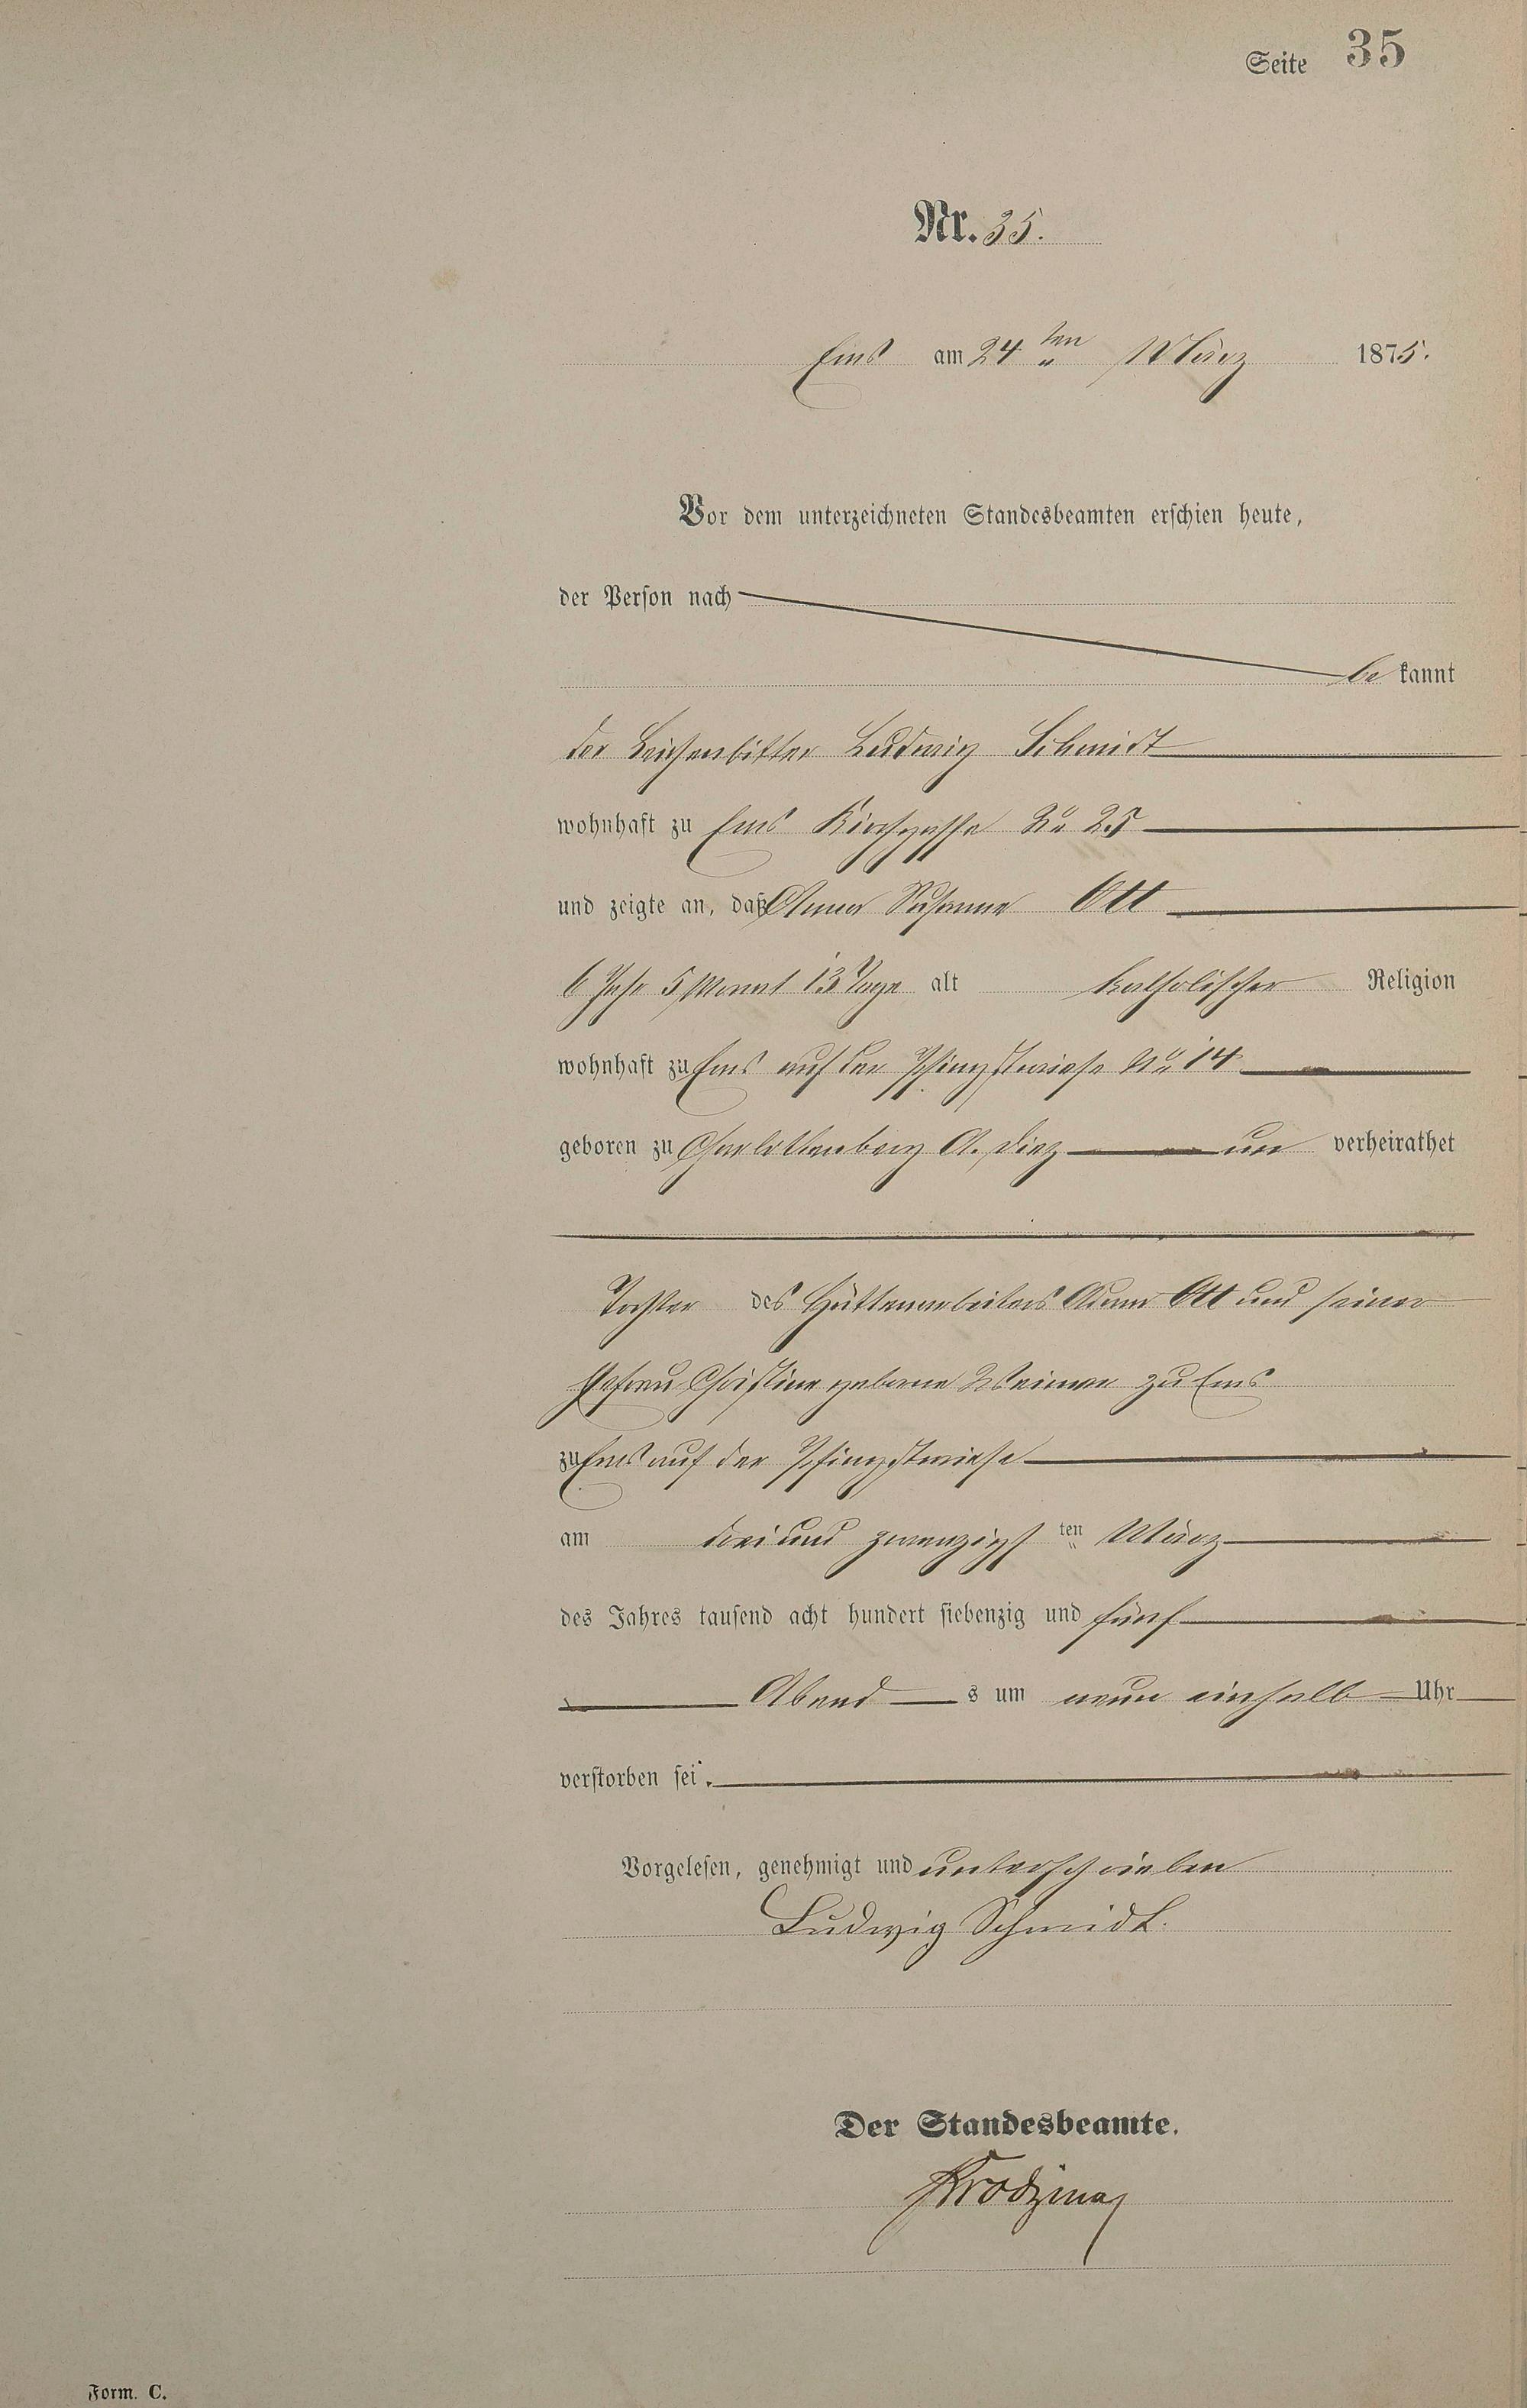 Seite 35
Nr. 35.
Ems am 24ten März 1875.
Vor dem unterzeichneten Standesbeamten erschien heute,
der Person nach
be kannt
der Leichenbitter Ludwig Schmidt
wohnhaft zu Ems Kirchgasse No 25
und zeigte an, daß Anna Susanna Ott
6 Jahr 5 Monat 13 Tage alt katholischer Religion
wohnhaft zu Ems auf der Pfingstwiese No 14
geboren zu Charlottenberg A. Diez un verheirathet
Tochter des Hüttenarbeiters Adam Ott und seiner
Ehefrau Christine geborne zu Ems
zu Ems auf der Pfingstwiese
am drei und zwanzigst ten März
des Jahres tausend acht hundert siebenzig und fünf
Abend s um neun einhalb Uhr
verstorben sei.
Vorgelesen, genehmigt und unterschrieben
Ludwig Schmidt.
Der Standesbeamte.
Form. C.